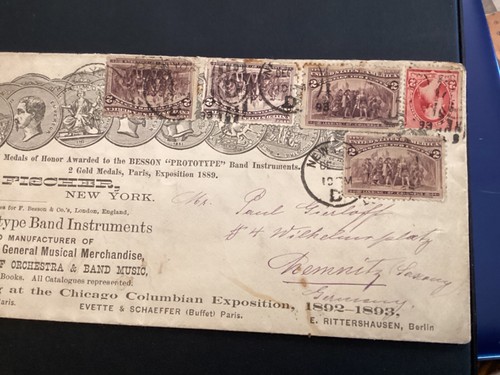 Medals of Honor Awarded to the BESSON "PROTOTYPE" Band Instruments.
2 Gold Medals, Paris, Exposition 1889.
FISCHER,
NEW YORK.
for F. Besson & Co.'s, London, England,
type Band Instruments
MANUFACTURER OF
General Musical Merchandise,
OF ORCHESTRA & BAND MUSIC,
Books. All Catalogues represented.
at the Chicago Columbian Exposition, 1892-1893,
Paris.
EVETTE & SCHAEFFER (Buffet) Paris.
E. RITTERSHAUSEN, Berlin
Mr. Paul
#4 Wilhelmsplatz
Chemnitz Saxony
Germany
NEW
D
93